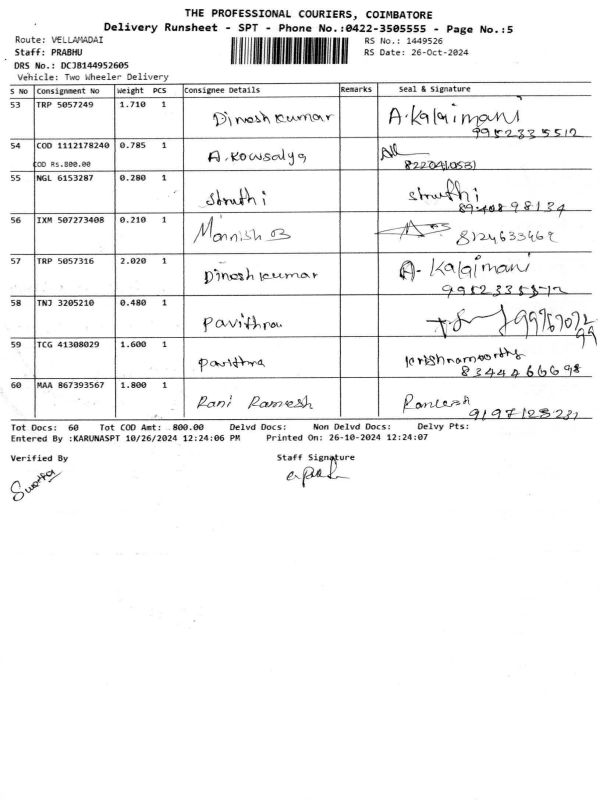 THE PROFESSIONAL COURIERS, COIMBATORE
Delivery Runsheet - SPT - Phone No.:0422-3505555 - Page No.:5
Route: VELLAMADAI RS No.: 1449526
Staff: PRABHU RS Date: 26-Oct-2024
DRS No.: DCJB144952605
Vehicle: Two Wheeler Delivery
S No Consignment No Weight PCS Consignee Details Remarks Seal & Signature
53 TRP 5057249 1.710 1 Dinesh kumar A.Kalaimani
9952335512
54 COD 1112178240 0.785 1 A.Kowsalya
COD Rs.800.00
55 NGL 6153287 0.280 1 Struthi Struthi
56 IXM 507273408 0.210 1 Monnish B 8124633469
57 TRP 5057316 2.020 1 Dinesh kumar A. Kalaimani
58 TNJ 3205210 0.480 1 Pavithra
59 TCG 41308029 1.600 1 Pavithra krishnamoorthy
60 MAA 867393567 1.800 1 Rani Ramesh Ramesh
Tot Docs: 60 Tot COD Amt: 800.00 Delvd Docs: Non Delvd Docs: Delvy Pts:
Entered By :KARUNASPT 10/26/2024 12:24:06 PM Printed On: 26-10-2024 12:24:07
Verified By Staff Signature